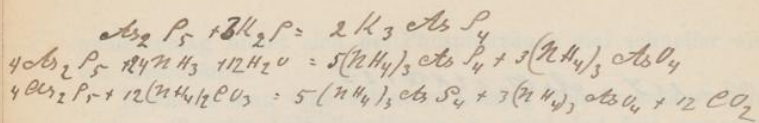 As₂S₅ + 3K₂S = 2K₃AsS₄
4As₂S₅ + 24NH₃ + 12H₂O = 5(NH₄)₃AsS₄ + 3(NH₄)₃AsO₄
4As₂S₅ + 12(NH₄)₂CO₃ = 5(NH₄)₃AsS₄ + 3(NH₄)₃AsO₄ + 12CO₂